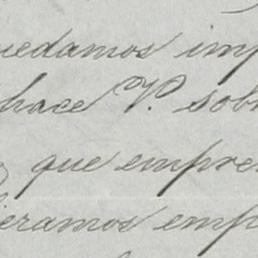 uedamos imp
hace V. sob
que empre
eramos emp